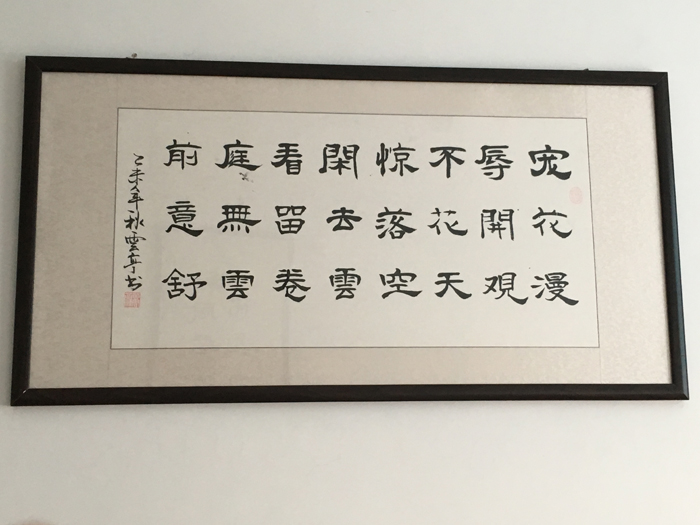 宠辱不惊閑看庭前
花開花落去留無意
漫观天空雲卷雲舒
乙未年秋雲亭书